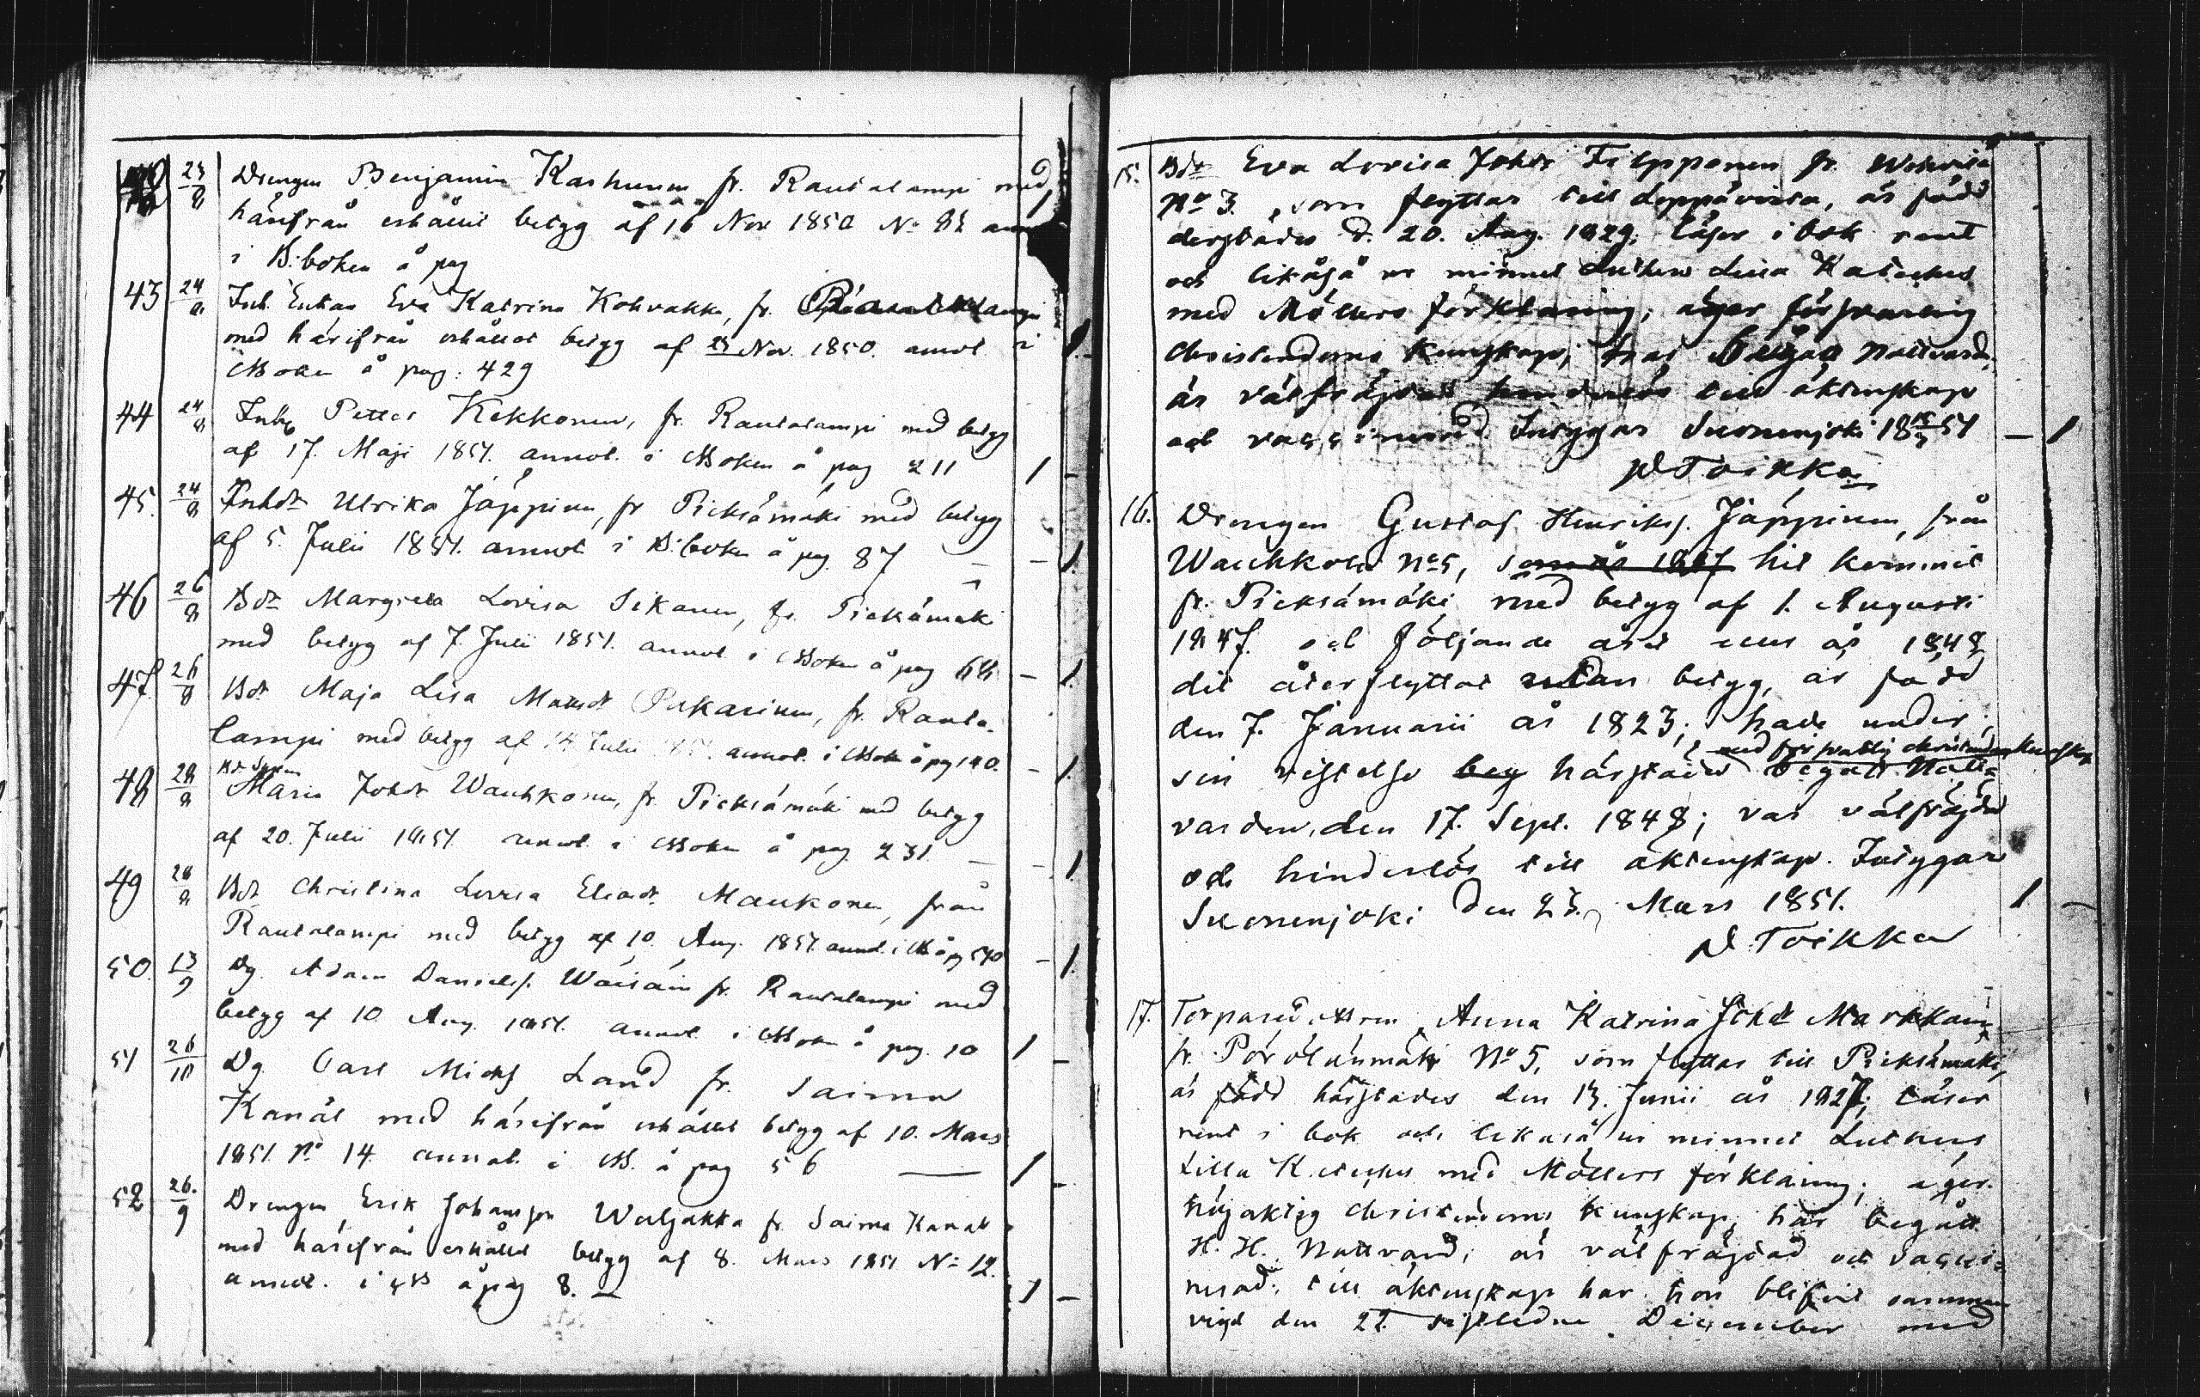 42 23/8 Drengen Benjamin Karhunen fr. Rautalampi med
härifrån erhållit betyg af 16 Nov 1850 No 82
i B:boken å pag
43 24/8 Inh. Enkan Eva Katrina Kohvakka, fr. Rautalampi
med härifrån erhållet betyg af Nov. 1850. annot. i
Boken å pag: 429
44 24/8 Inh. Petter Kekkonen, fr. Rautalampi med betyg
af 17. Maji 1851. annot. i Boken å pag 211 1 -
45. 24/8 Inhdr Ulrika Jäppinen, fr Pieksämäki med betyg
af 5. Julii 1851. annot i B:boken å pag. 87 - 1.
46 26/8 Bdr Margreta Lovisa Sikanen, fr. Pieksämäki
med betyg af 7. Julii 1851. annot i Boken å pag 68 - 1.
47. 26/8 Bdr Maja Lisa Mattsdr fr. Rauta-
lampi med betyg af 14 Julii 1851. annot. i Bok å pag 140. - 1.
48 28/8 Maria Johdr Wauhkonen, fr. Pieksämäki med betyg
af 20. Julii 1851 annot. i Boken å pag 231. - 1.
49 28/8 Bdr Christina Lovisa Eliasdr. Maukonen, från
Rautalampi med betyg af 10. Aug. 1851 annot. i B å pg 540 - 1.
50. 13/9 Dg. Adam Danielss. Wäisäin fr. Rautalampi med
betyg af 10 Aug. 1851. annot. i Boken å pag. 10 1 -
51 26/10 Dg. Carl Michss Land fr. Saima
Kanal med härifrån erhållit betyg af 10. Mars
1851. No 14. annot. i B. å pag 56 1 -
52 26./9 Drengen Erik Johansson Weljakka fr. Saima Kanal
med härifrån erhållet betyg af 8. Mars 1851 No 12.
annot. i B å pag 8. 1 -
15. Bdr Eva Lovisa Johdr Filpponen fr.
No 3. som flyttar till Leppävirta, är född
derstädes d. 20. Aug. 1829; läser i bok rent
och likaså ur minnet Luthers Lilla Kateches
med Möllers förklaring; äger försvarlig
christendoms kunskap; har begått Nattvard,
är välfrägdad hinderlös till äktenskap
och vaccinerad. Intygar Suonenjoki 18 51 - 1
P Toikka
16. Drengen Gustaf Henrikss. Jäppinen, från
Wauhkola No 5, som år 1847 hit kommit
fr. Pieksämäki med betyg af 1. Augusti
1847. och följande året eller år 1848
dit återflyttat utan betyg, är född
den 7. Januarii år 1823; hade under
med försvarlig christendoms kunskap
sin vistelse beg härstädes begått Natt-
varden, den 17. Sept. 1848; var välfrägdad
och hinderlös till äktenskap. Intygar
Suonenjoki den 23. Mars 1851. 1 -
P Toikka
17. Torpared. Anna Katrina Johdr Markkain
fr. Pörölänmäki No 5, som flyttar till Pieksämäki,
är född härstädes den 13. Junii år 1827; läser
rent i bok och likaså ur minnet Luthers
Lilla Kateches med Möllers förklaring; äger
nöjaktig christendoms kunskap; har begått
H. H. Nattvard; är välfrägdad och vacci-
nerad; till äktenskap har hon blifvit samman
vigd den 27. sistledne December med